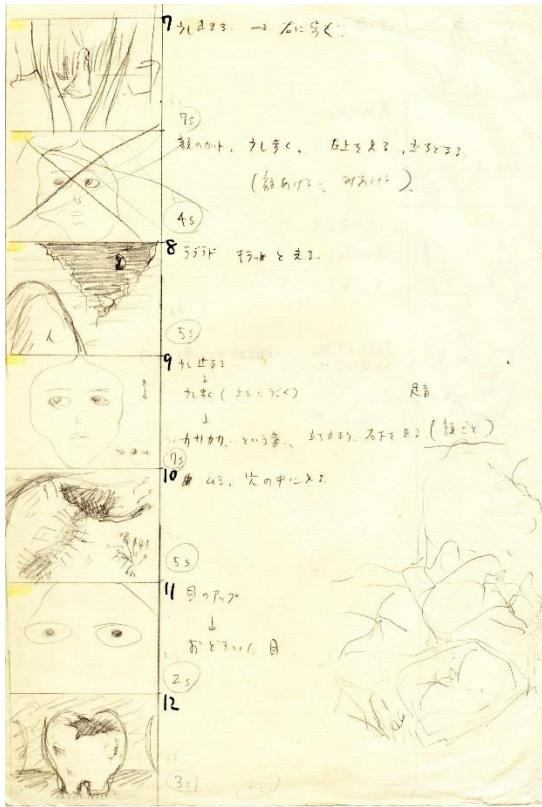 7 少し止まる. → 右に歩く.
7s
顔のカット, 少し歩く, 右上を見る, 立ちどまる
(顔あげる、みあげる)
4s
8
5s
9 少し止まる
↓
少し歩く (よこにうごく)
足音
↓
カサカサ.. という音、立ち止まり、右下を見る (顔ごと)
7s
10 ムシ、穴の中に入る
5s
11 目のアップ
↓
おどろいた目
2s
12
3s